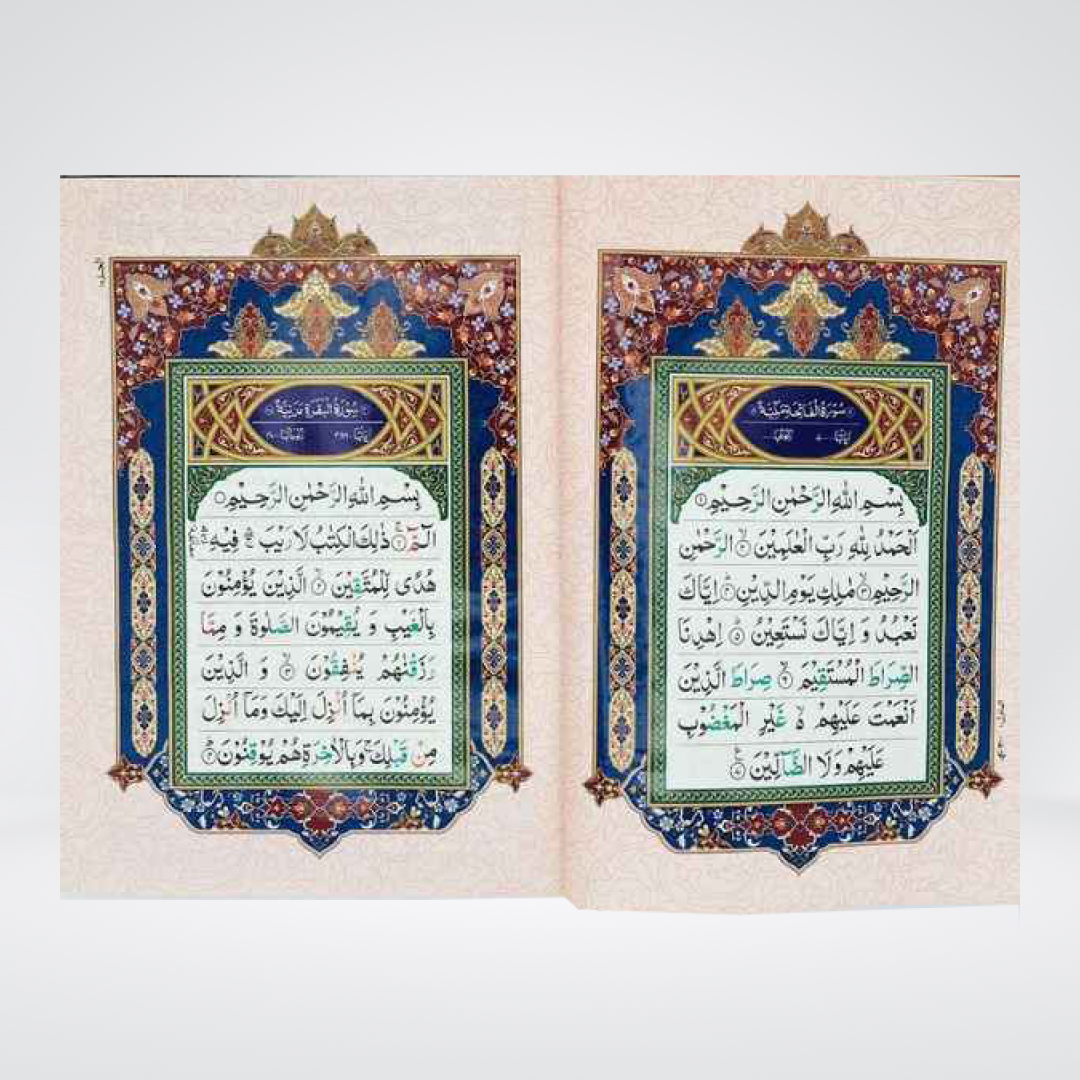 سُوْرَةُ الْفَاتِحَةِ مَكِّيَّةٌ
بِسْمِ اللّٰهِ الرَّحْمٰنِ الرَّحِيْمِ ۝١
اَلْحَمْدُ لِلّٰهِ رَبِّ الْعٰلَمِيْنَ ۝٢ الرَّحْمٰنِ
الرَّحِيْمِ ۝٣ مٰلِكِ يَوْمِ الدِّيْنِ ۝٤ اِيَّاكَ
نَعْبُدُ وَ اِيَّاكَ نَسْتَعِيْنُ ۝٥ اِهْدِنَا
الصِّرَاطَ الْمُسْتَقِيْمَ ۝٦ صِرَاطَ الَّذِيْنَ
اَنْعَمْتَ عَلَيْهِمْ ۙ۬ غَيْرِ الْمَغْضُوْبِ
عَلَيْهِمْ وَلَا الضَّآلِّيْنَ ۝٧
سُوْرَةُ الْبَقَرَةِ مَدَنِيَّةٌ
بِسْمِ اللّٰهِ الرَّحْمٰنِ الرَّحِيْمِ
الٓمّٓ ۝١ ذٰلِكَ الْكِتٰبُ لَا رَيْبَ ۛۖ فِيْهِ ۛۚ
هُدًى لِّلْمُتَّقِيْنَ ۝٢ الَّذِيْنَ يُؤْمِنُوْنَ
بِالْغَيْبِ وَ يُقِيْمُوْنَ الصَّلٰوةَ وَ مِمَّا
رَزَقْنٰهُمْ يُنْفِقُوْنَ ۝٣ وَ الَّذِيْنَ
يُؤْمِنُوْنَ بِمَآ اُنْزِلَ اِلَيْكَ وَمَآ اُنْزِلَ
مِنْ قَبْلِكَ ۚ وَبِالْاٰخِرَةِ هُمْ يُوْقِنُوْنَ ۝٤